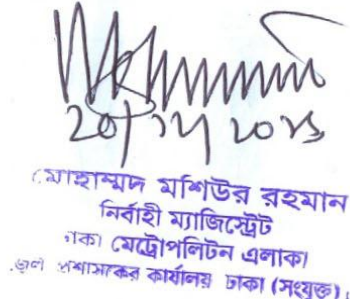 মোহাম্মদ মশিউর রহমান
নির্বাহী ম্যাজিস্ট্রেট
ঢাকা মেট্রোপলিটন এলাকা
জেলা প্রশাসকের কার্যালয় ঢাকা (সংযুক্ত)।